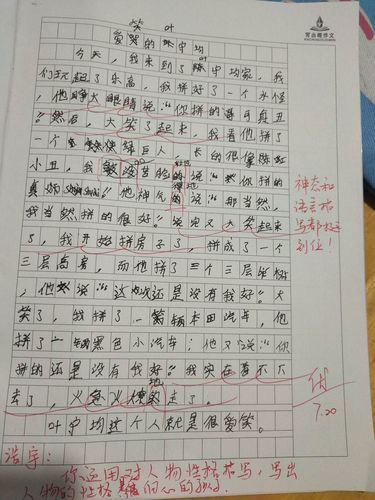 宫立明作文
笑 叶
爱哭的陈中均
今天,我来到了陈中均家,我
叶
们玩起了乐高,我拼好了一个水怪
,他睁大眼睛说:“你拼的哥可真丑
”然后,大笑了起来,我看他拼了
一个绿巨人,长的很像
小丑,我说:“你拼的
真好”他神气的说:“那当然,
我当然拼的很好。”说完又大笑起来
了,我开始拼房子了,拼成了一个
三层高房,而他拼了三个三层树
,他说:“这还是没有我好”。大
笑了,我拼了一辆本田汽车,他
拼了一辆黑色小汽车;他又说:“你
拼的还是没有我好”我实在看不下
去了,火急火燎地走了。
叶宇均这个人就是很爱笑。
神态和
语言描
写都
到位!
优
7.20
浩宇:
你运用对人物性格描写,写出
人物的性格